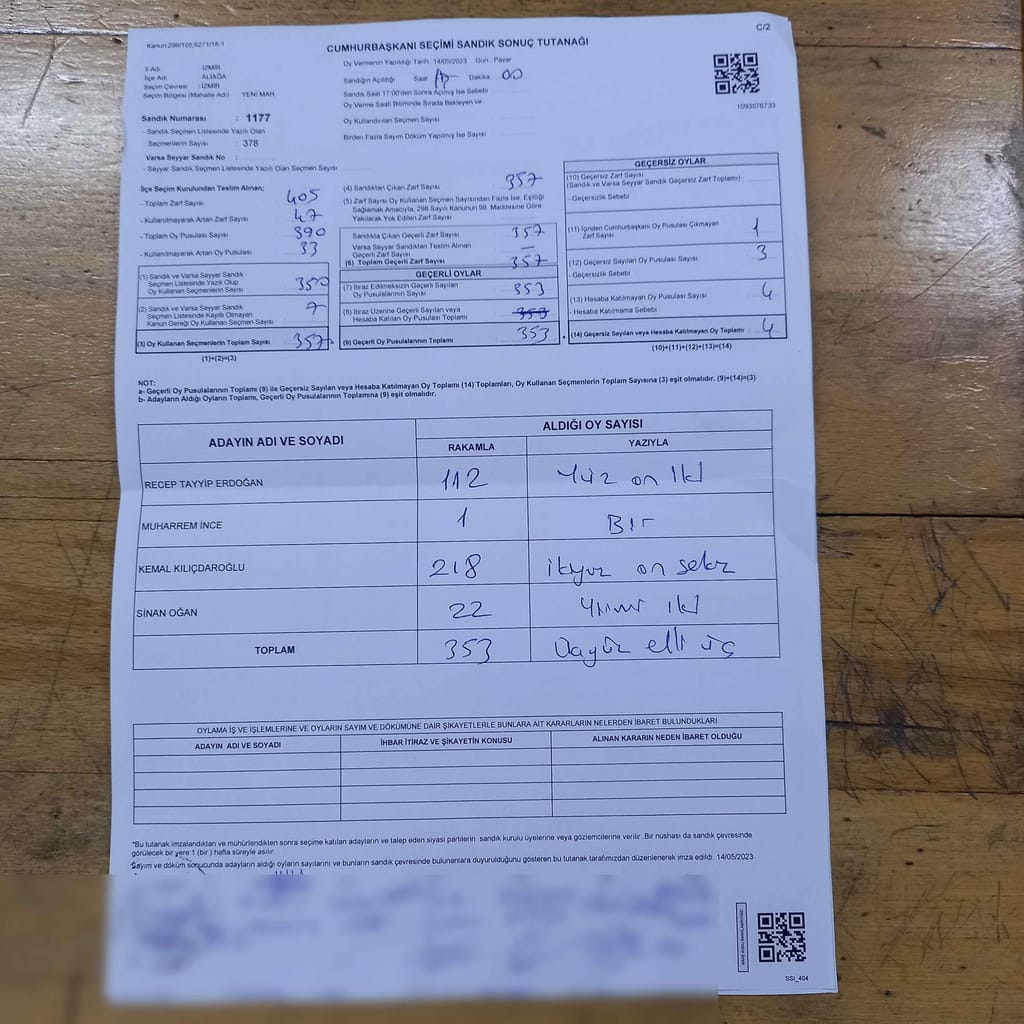 C/2
Kanun:298/105;6271/18-1
CUMHURBAŞKANI SEÇİMİ SANDIK SONUÇ TUTANAĞI
İl Adı : İZMİR
İlçe Adı : ALİAĞA
Seçim Çevresi : İZMİR
Seçim Bölgesi (Mahalle Adı) YENİ MAH.
Sandık Numarası : 1177
- Sandık Seçmen Listesinde Yazılı Olan
Seçmenlerin Sayısı : 378
Varsa Seyyar Sandık No :
- Seyyar Sandık Seçmen Listesinde Yazılı Olan Seçmen Sayısı
Oy Vermenin Yapıldığı Tarih :14/05/2023 Gün: Pazar
Sandığın Açıldığı Saat 17 Dakika 00
Sandık Saat 17:00'den Sonra Açılmış İse Sebebi
Oy Verme Saati Bitiminde Sırada Bekleyen ve
Oy Kullandırılan Seçmen Sayısı
Birden Fazla Sayım Döküm Yapılmış İse Sayısı
1093576733
İlçe Seçim Kurulundan Teslim Alınan;
- Toplam Zarf Sayısı 405
- Kullanılmayarak Artan Zarf Sayısı 47
- Toplam Oy Pusulası Sayısı 390
- Kullanılmayarak Artan Oy Pusulası 33
(1) Sandık ve Varsa Seyyar Sandık
Seçmen Listesinde Yazılı Olup
Oy Kullanan Seçmenlerin Sayısı 350
(2) Sandık ve Varsa Seyyar Sandık
Seçmen Listesinde Kayıtlı Olmayan
Kanun Gereği Oy Kullanan Seçmen Sayısı 7
(3) Oy Kullanan Seçmenlerin Toplam Sayısı 357
(1)+(2)=(3)
(4) Sandıktan Çıkan Zarf Sayısı 357
(5) Zarf Sayısı Oy Kullanan Seçmen Sayısından Fazla İse, Eşitliği
Sağlamak Amacıyla, 298 Sayılı Kanunun 98. Maddesine Göre
Yakılarak Yok Edilen Zarf Sayısı
Sandıkta Çıkan Geçerli Zarf Sayısı 357
Varsa Seyyar Sandıktan Teslim Alınan
Geçerli Zarf Sayısı —
(6) Toplam Geçerli Zarf Sayısı 357
GEÇERLİ OYLAR
(7) İtiraz Edilmeksizin Geçerli Sayılan
Oy Pusulalarının Sayısı 353
(8) İtiraz Üzerine Geçerli Sayılan veya
Hesaba Katılan Oy Pusulası Toplamı 353
(9) Geçerli Oy Pusulalarının Toplamı 353
GEÇERSİZ OYLAR
(10) Geçersiz Zarf Sayısı
(Sandık ve Varsa Seyyar Sandık Geçersiz Zarf Toplamı)
- Geçersizlik Sebebi
(11) İçinden Cumhurbaşkanı Oy Pusulası Çıkmayan
Zarf Sayısı 1
(12) Geçersiz Sayılan Oy Pusulası Sayısı 3
- Geçersizlik Sebebi
(13) Hesaba Katılmayan Oy Pusulası Sayısı 4
- Hesaba Katılmama Sebebi
(14) Geçersiz Sayılan veya Hesaba Katılmayan Oy Toplamı 4
(10)+(11)+(12)+(13)=(14)
NOT:
a- Geçerli Oy Pusulalarının Toplamı (9) ile Geçersiz Sayılan veya Hesaba Katılmayan Oy Toplamı (14) Toplamları, Oy Kullanan Seçmenlerin Toplam Sayısına (3) eşit olmalıdır. (9)+(14)=(3)
b- Adayların Aldığı Oyların Toplamı, Geçerli Oy Pusulalarının Toplamına (9) eşit olmalıdır.
ADAYIN ADI VE SOYADI ALDIĞI OY SAYISI
RAKAMLA YAZIYLA
RECEP TAYYİP ERDOĞAN 112 Yüz on iki
MUHARREM İNCE 1 Bir
KEMAL KILIÇDAROĞLU 218 ikiyüz on sekiz
SİNAN OĞAN 22 yirmi iki
TOPLAM 353 Üçyüz elli üç
OYLAMA İŞ VE İŞLEMLERİNE VE OYLARIN SAYIM VE DÖKÜMÜNE DAİR ŞİKAYETLERLE BUNLARA AİT KARARLARIN NELERDEN İBARET BULUNDUKLARI
ADAYIN ADI VE SOYADI İHBAR İTİRAZ VE ŞİKAYETİN KONUSU ALINAN KARARIN NEDEN İBARET OLDUĞU
*Bu tutanak imzalandıktan ve mühürlendikten sonra seçime katılan adayların ve talep eden siyasi partilerin sandık kurulu üyelerine veya gözlemcilerine verilir. Bir nüshası da sandık çevresinde
görülecek bir yere 1 (bir) hafta süreyle asılır.
Sayım ve döküm sonucunda adayların aldığı oyların sayılarını ve bunların sandık çevresinde bulunanlara duyurulduğunu gösteren bu tutanak tarafımızdan düzenlenerek imza edildi. 14/05/2023
SSI_404